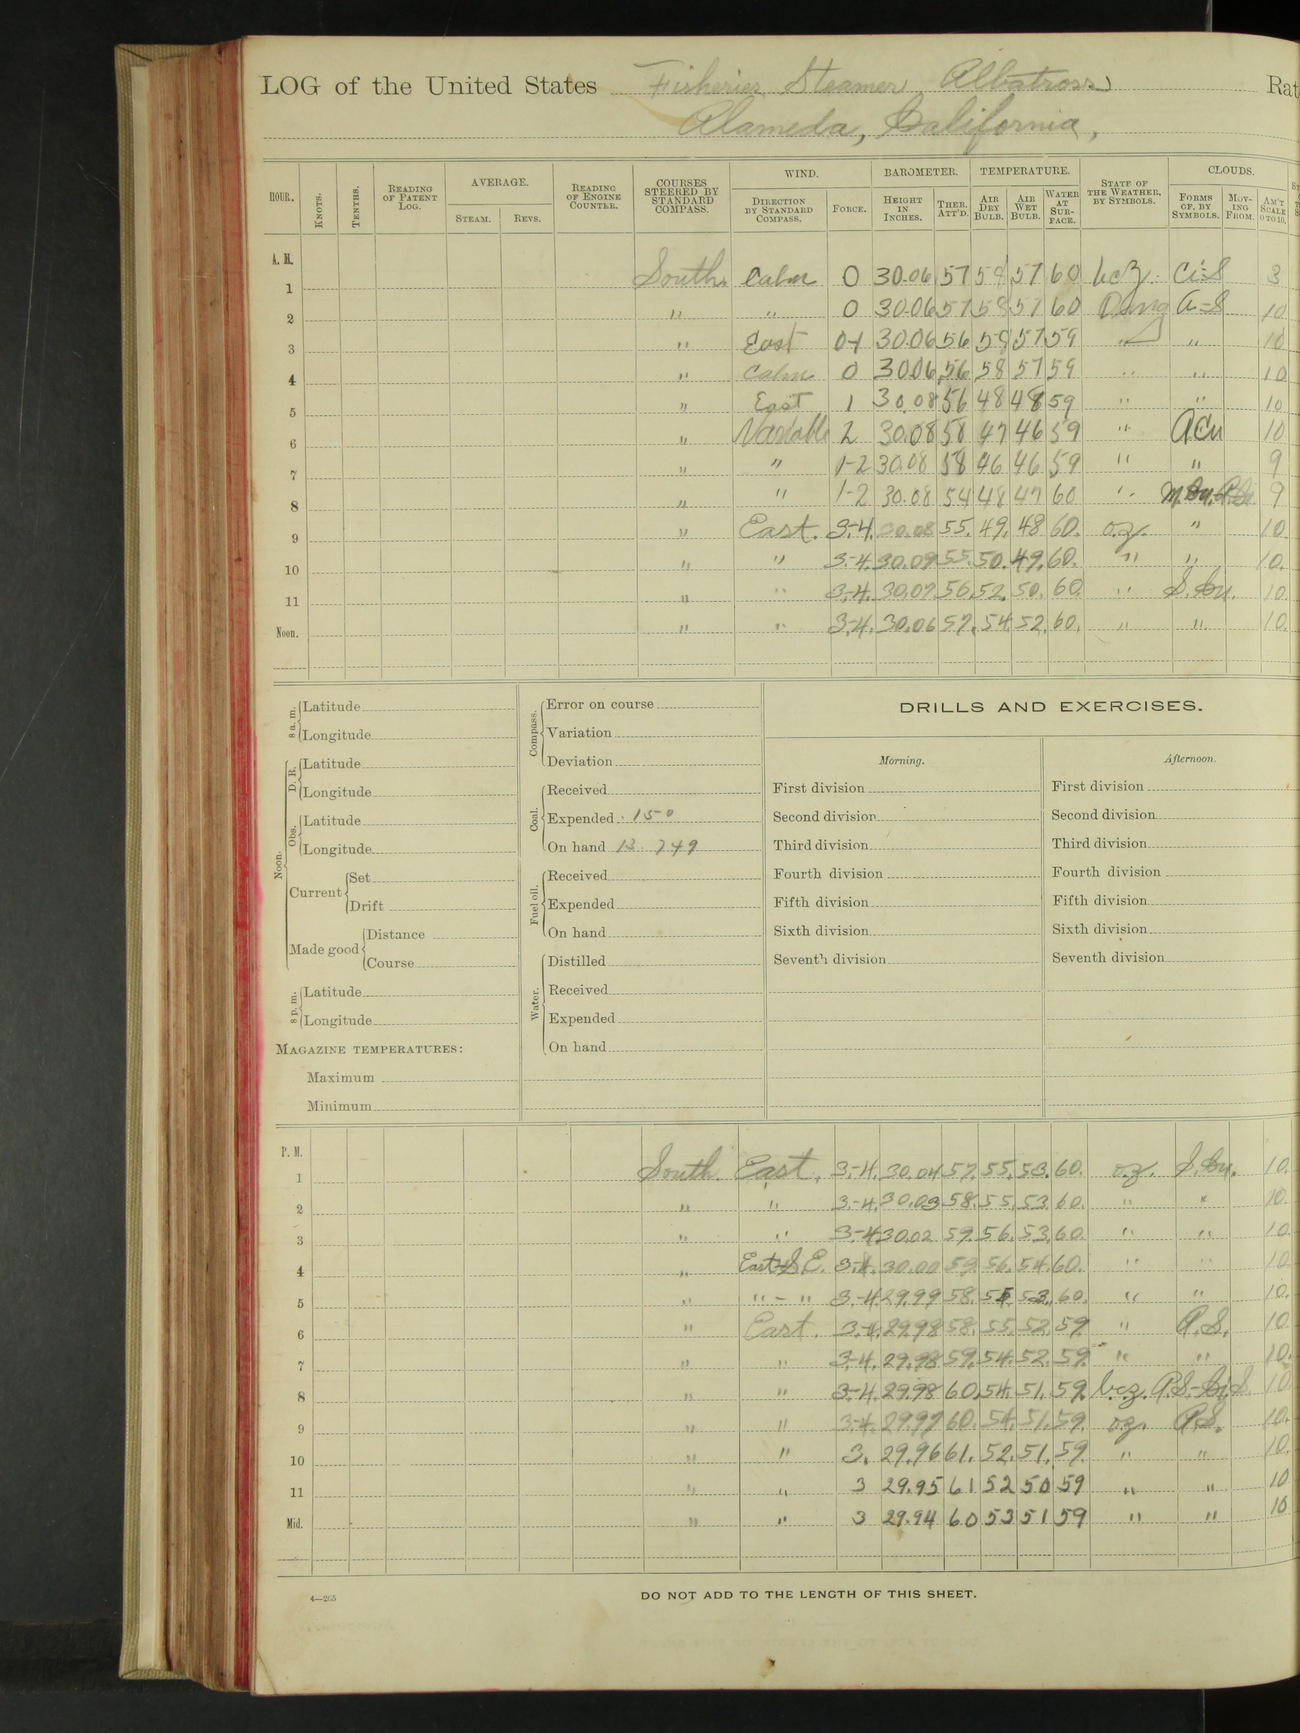 LOG of the United States Fisheries Steamer Albatross Rat
Alameda, California,
HOUR. KNOTS. TENTHS. READING OF PATENT LOG. AVERAGE. STEAM. REVS. READING OF ENGINE COUNTER. COURSES STEERED BY STANDARD COMPASS. WIND. DIRECTION BY STANDARD COMPASS. FORCE. BAROMETER. HEIGHT IN INCHES. THER. ATT'D. TEMPERATURE. AIR DRY BULB. AIR WET BULB. WATER AT SURFACE. STATE OF THE WEATHER, BY SYMBOLS. CLOUDS. FORMS OF, BY SYMBOLS. MOVING FROM. AM'T SCALE 0 TO 10.
A. M.
1 South Calm 0 30.06 57 58 57 60 bcz. Ci-S 3
2 " " 0 30.06 57 58 57 60 10
3 " East 0-1 30.06 56 58 57 59 " " 10
4 " Calm 0 30.06 56 58 57 59 " " 10
5 " East 1 30.08 56 48 48 59 " " 10
6 " Variable 2 30.08 58 47 46 59 " A.Cu 10
7 " " 1-2 30.08 58 46 46 59 " " 9
8 " " 1-2 30.08 54 48 47 60 " 9
9 " East. 3-4. 30.08 55. 49. 48 60. oz. " 10.
10 " " 3-4. 30.09 55. 50. 49. 60. " " 10.
11 " " 3-4. 30.07 56. 52. 50. 60. " S.Cu. 10.
Noon. " " 3-4. 30.06 57. 54. 52. 60. " " 10.
8 a. m. Latitude
Longitude
Noon. D. R. Latitude
Longitude
Obs. Latitude
Longitude
Current Set
Drift
Made good Distance
Course
8 p. m. Latitude
Longitude
MAGAZINE TEMPERATURES:
Maximum
Minimum
Compass. Error on course
Variation
Deviation
Coal. Received
Expended 150
On hand 13 749
Fuel oil. Received
Expended
On hand
Water. Distilled
Received
Expended
On hand
DRILLS AND EXERCISES.
Morning. Afternoon.
First division First division
Second division Second division
Third division Third division
Fourth division Fourth division
Fifth division Fifth division
Sixth division Sixth division
Seventh division Seventh division
P. M.
1 South East. 3-4. 30.04 57. 55. 53. 60. oz. S.Cu. 10.
2 " " 3-4. 30.03 58. 55. 53. 60. " " 10.
3 " " 3-4 30.02 59. 56. 53. 60. " " 10.
4 " East-S.E. 3-4. 30.00 59. 56. 54. 60. " " 10.
5 " " - " 3-4 29.99 58. 53. 60. " " 10.
6 " East. 3-4. 29.98 58. 55. 52. 59. " A.S. 10.
7 " " 3-4. 29.98 59. 54. 52. 59. " " 10.
8 " " 3-4. 29.98 60. 54. 51. 59. bcz. A.S-Ci.S. 10.
9 " " 3-4. 29.97 60. 54. 51. 59. oz. A.S. 10.
10 " " 3. 29.96 61. 52. 51. 59. " " 10.
11 " " 3 29.95 61 52 50 59 " " 10
Mid. " " 3 29.94 60 53 51 59 " " 10
4—265
DO NOT ADD TO THE LENGTH OF THIS SHEET.